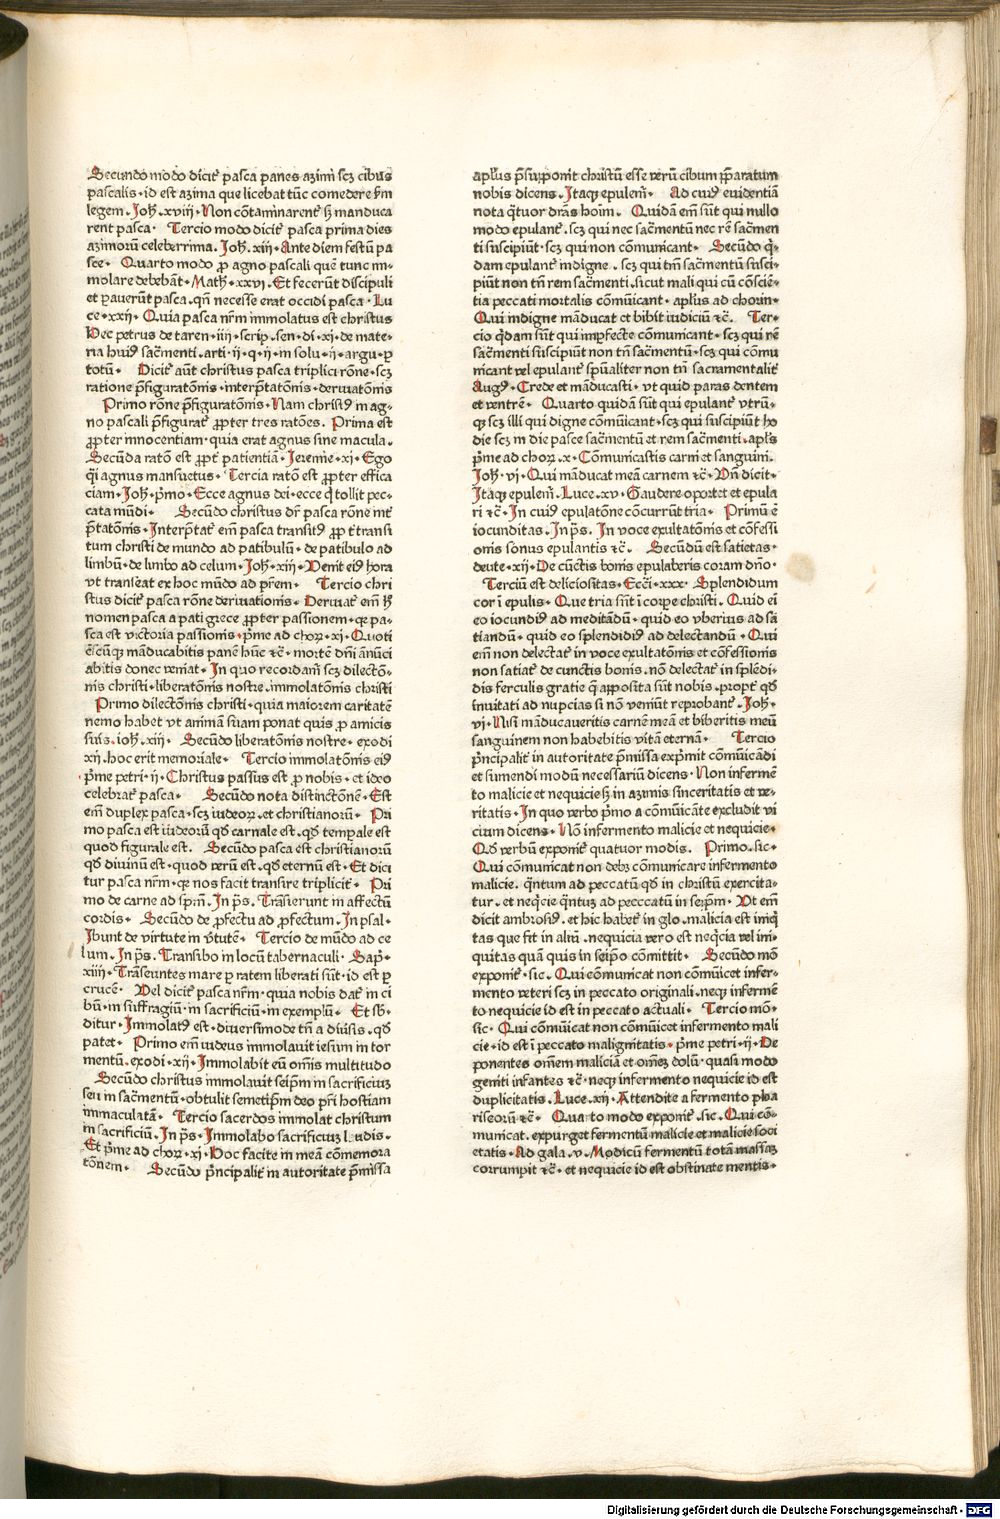 Secundo modo dicit᷑ pasca panes azimi scȝ cibus
pascalis · id est azima que licebat tūc comedere ẜm
legem . Joh̄ . xviii · Non cōtaminarent᷑ sȝ manduca
rent pasca · Tercio modo dicit᷑ pasca prima dies
azimorū celeberrima . Joh̄ . xiii · Ante diem festū pa
sce · Quarto modo ꝓ agno pascali quē tunc im-
molare debebāt · Math̄ · xxvi · Et fecerūt discipuli
et ꝑauerūt pasca . qn̄ necesse erat occidi pasca · Lu
ce · xxii · Quia pasca nr̄m immolatus est christus
Hec petrus de taren · iiii · scrip . sen · di · xi · de mate-
ria huiꝰ sac̄menti . arti · ii · q · ii · in solu · ii · argu · ꝑ
totū · Dicit᷑ aūt christus pasca triplici rōne · scȝ
ratione p̄figuratōnis · interp̄tatōnis · deriuatōnis
Primo rōne p̄figuratōnis · Nam christꝰ in ag-
no pascali p̄figurat᷑ ꝓpter tres ratōes . Prima est
ꝓpter innocentiam · quia erat agnus sine macula .
Secūda ratō est ꝓpt᷑ patientiā · Jeremie · xi · Ego
q̄i agnus mansuetus · Tercia ratō est ꝓpter effica
ciam · Joh̄ · p̄mo · Ecce agnus dei · ecce q̄ tollit pec-
cata mūdi · Secūdo christus dr̄ pasca rōne int᷑
p̄tatōnis · Interp̄tat᷑ em̄ pasca transitꝰ ꝓ p̄t transi
tum christi de mundo ad patibulū · de patibulo ad
limbū · de limbo ad celum . Joh̄ · xiii · Venit eiꝰ hora
vt transeat ex hoc mūdo ad pr̄em · Tercio chri
stus dicit᷑ pasca rōne deriuationis · Deriuat᷑ em̄ h̄
nomen pasca a pati grece ꝓpter passionem · qꝛ pa-
sca est victoria passionis · p̄me ad choꝝ · xi · Quoti
ēscūqꝫ māducabitis panē hūc ⁊c̄ · mortē dn̄i ānūci
abitis donec veniat · In quo recordam̄ scȝ dilectō-
nis christi · liberatōnis nostre · immolatōnis christi
Primo dilectōnis christi · quia maiorem caritatē
nemo habet vt animā suam ponat quis ꝓ amicis
suis . ioh̄ . xiii · Secūdo liberatōnis nostre · exodi
xii . hoc erit memoriale · Tercio immolatōnis eiꝰ
p̄me petri · ii · Christus passus est ꝓ nobis · et ideo
celebrat᷑ pasca · Secūdo nota distinctōnē · Est
em̄ duplex pasca · scȝ iudeoꝝ . et christianorū · Pri
mo pasca est iudeorū qd̄ carnale est . qd̄ temꝑale est
quod figurale est . Secūdo pasca est christianorū
qd̄ diuinū est · quod verū est . qd̄ eternū est · Et dici
tur pasca nr̄m · qꝛ nos facit transire triplicit᷑ · Pri
mo de carne ad sp̄m . In ps̄ . Trāsierunt in affectū
cordis · Secūdo de ꝓfectu ad ꝓfectum . In psal-
Ibunt de virtute in v̄tutē · Tercio de mūdo ad ce
lum . In ps̄ . Transibo in locū tabernaculi · Sap̄ ·
xiiii · Trāseuntes mare ꝑ ratem liberati sūt · id est ꝑ
crucē · Vel dicit᷑ pasca nr̄m · quia nobis dat᷑ in ci
bū · in suffragiū · in sacrificiū · in exemplū · Et sb̄-
ditur · Immolatꝰ est · diuersimode tn̄ a diūsis . qd̄
patet · Primo em̄ iudeus immolauit iesum in tor
mentū . exodi · xii · Immolabit eū om̄is multitudo
Secūdo christus immolauit seip̄m in sacrificiuꝫ
seu in sac̄mentū · obtulit semetip̄m deo pr̄i hostiam
immaculatā · Tercio sacerdos immolat christum
in sacrificiū . In ps̄ · Immolabo sacrificiuꝫ laudis ·
Et p̄me ad choꝝ · xi · Hoc facite in meā cōmemora
tōnem · Secūdo p̄ncipalit᷑ in autoritate p̄missa
apl̄us p̄supponit christū esse verū cibum p̄paratum
nobis dicens . Itaqꝫ epulem̄ · Ad cuiꝰ euidentiā
nota q̄tuor dr̄as hoīm · Quidā em̄ sūt qui nullo
modo epulant᷑ . scȝ qui nec sac̄mentū nec rē sac̄men
ti suscipiūt · scȝ qui non cōmunicant · Secūdo q̄-
dam epulant᷑ indigne . scȝ qui tm̄ sac̄mentū susci-
piūt non tn̄ rem sac̄menti . sicut mali qui cū cōsciē-
tia peccati mortalis cōmūicant · apl̄us ad chorin ·
Qui indigne māducat et bibit iudiciū ⁊c̄ . Ter-
cio q̄dam sūt qui imꝑfecte cōmunicant · scȝ qui rē
sac̄menti suscipiūt non tn̄ sac̄mentū · scȝ qui cōmu
nicant vel epulant᷑ spūaliter non tn̄ sacramentalit᷑
Augꝰ · Crede et māducasti · vt quid paras dentem
et ventrē · Quarto quidā sūt qui epulant᷑ vtrū-
qꝫ scȝ illi qui digne cōmūicant · scȝ qui suscipiūt ho
die scȝ in die pasce sac̄mentū et rem sac̄menti . apl̄s
p̄me ad choꝝ · x · Cōmunicastis carni et sanguini .
Joh̄ · vi · Qui māducat meā carnem ⁊c̄ · Vn̄ dicit ·
Itaqꝫ epulem̄ . Luce . xv · Gaudere oportet et epula
ri ⁊c̄ · In cuiꝰ epulatōne cōcurrūt tria · Primū ē
iocunditas . In ps̄ . In voce exultatōnis et cōfessi
onis sonus epulantis ⁊c̄ . Secūdū est satietas ·
deute · xii · De cūctis bonis epulaberis coram dn̄o ·
Terciū est deliciositas · Ecc̄i · xxx · Splendidum
cor ī epulis · Que tria sūt ī corꝑe christi . Quid eī
eo iocundiꝰ ad meditādū · quid eo vberius ad sa
tiandū · quid eo splendidiꝰ ad delectandū · Qui
em̄ non delectat᷑ in voce exultatōnis et cōfessionis
non satiat᷑ de cunctis bonis . nō delectat᷑ in splēdi-
dis ferculis gratie q̄ apposita sūt nobis . propt᷑ qd̄
inuitati ad nupcias si nō veniūt reprobant᷑ . Joh̄ ·
vi · Nisi māducaueritis carnē meā et biberitis meū
sanguinem non habebitis vitā eternā · Tercio
p̄ncipalit᷑ in autoritate p̄missa exp̄mit cōmūicādi
et sumendi modū necessariū dicens · Non infermē
to malicie et nequicie sȝ in azimis sinceritatis et ve-
ritatis · In quo verbo p̄mo a cōmūicāte excludit vi
cium dicens · Nō infermento malicie et nequicie ·
Qd̄ verbū exponit᷑ quatuor modis . Primo . sic ·
Qui cōmunicat non debȝ cōmunicare infermento
malicie . q̄ntum ad peccatū qd̄ in christū exercita-
tur . et neq̄cie q̄ntuꝫ ad pecccatū in seip̄m · Vt em̄
dicit ambrosiꝰ . et hic habet᷑ in glo . malicia est iniq̄
tas que fit in aliū . nequicia vero est neq̄cia vel ini-
quitas quā quis in seip̄o cōmittit · Secūdo mō
exponit᷑ · sic . Qui cōmunicat non cōmūicet infer-
mento veteri scȝ in peccato originali . neqꝫ infermē
to nequicie id est in peccato actuali · Tercio mō ·
sic · Qui cōmūicat non cōmūicet infermento mali
cie · id est ī peccato malignitatis · p̄me petri · ii · De
ponentes om̄em maliciā et om̄eꝫ dolū · quasi modo
geniti infantes ⁊c̄ · neqꝫ infermento nequicie id est
duplicitatis . Luce . xii · Attendite a fermento pha
riseorū ⁊c̄ · Quarto modo exponit᷑ . sic . Qui cō-
municat . expurget fermentū malicie et malicie soci
etatis · Ad gala . v . Modicū fermentū totā massaꝫ
corrumpit ⁊c̄ · et nequicie id est obstinate mentis ·
Digitalisierung gefördert durch die Deutsche Forschungsgemeinschaft - DFG